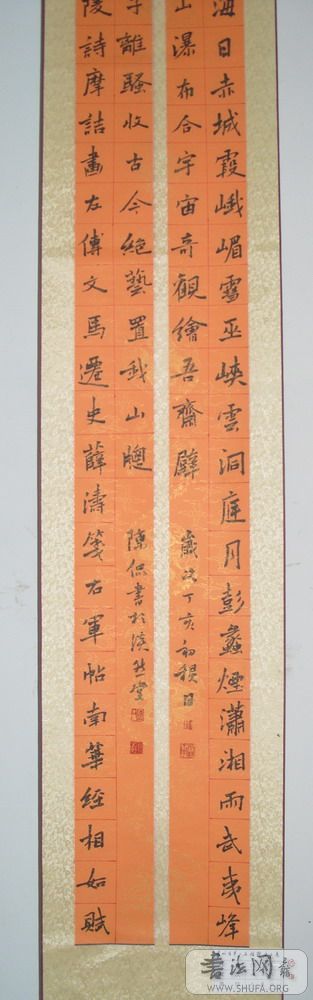 海日赤城霞峨嵋雪巫峽雲洞庭月彭蠡煙瀟湘雨武夷峰
山瀑布合宇宙奇觀繪吾齋壁
歲次丁亥初穐日
陵詩摩詰畫左傳文馬遷史薛濤箋右軍帖南華經相如賦
子離騷收古今絕藝置我山牕
陳侃書於堂
書法网
WWW.SHUFA.ORG